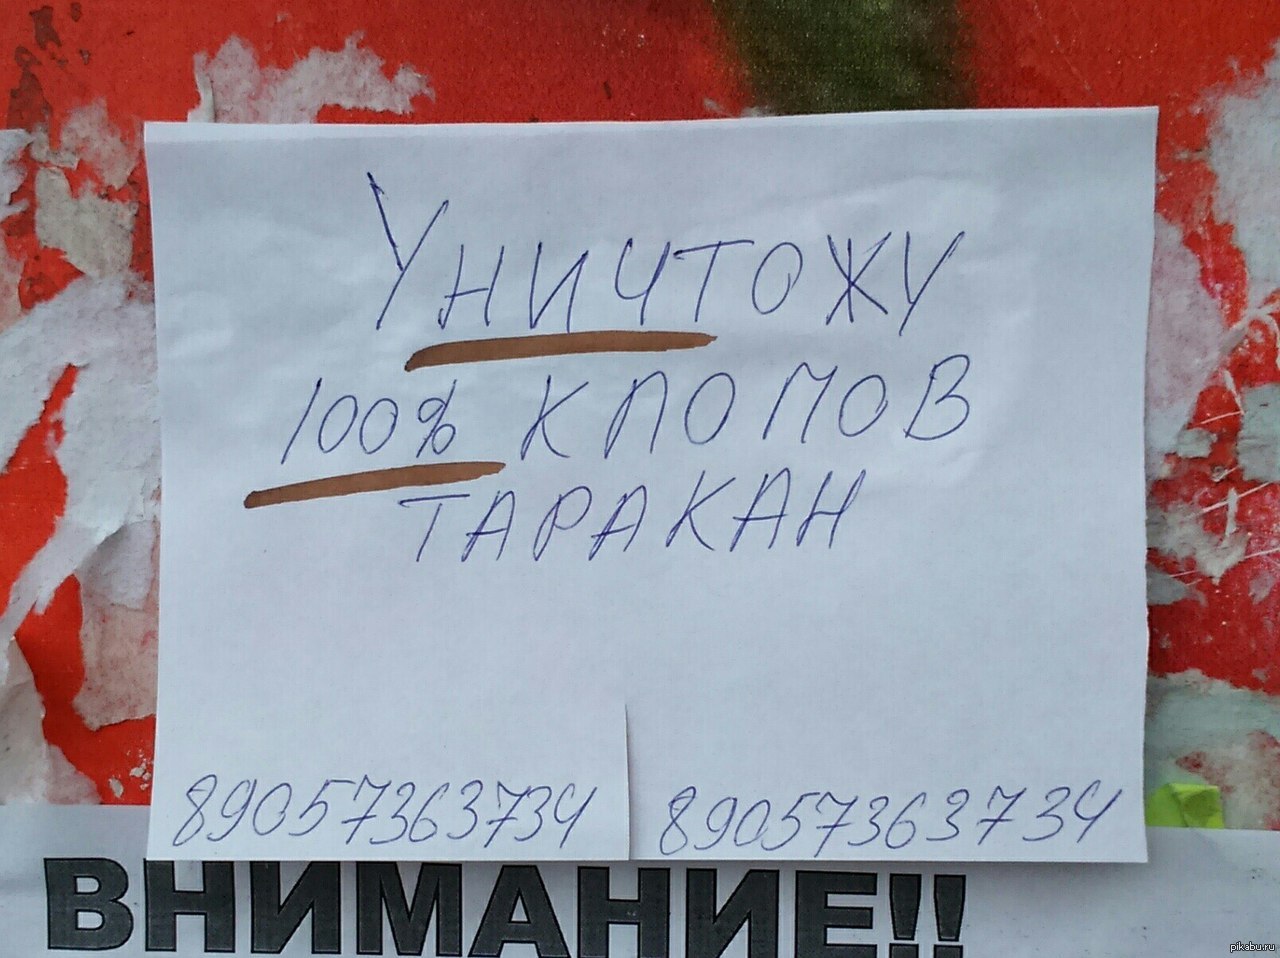 УНИЧТОЖУ
100% КЛОПОВ
ТАРАКАН
89057363734 89057363734
ВНИМАНИЕ!!
pikabu.ru